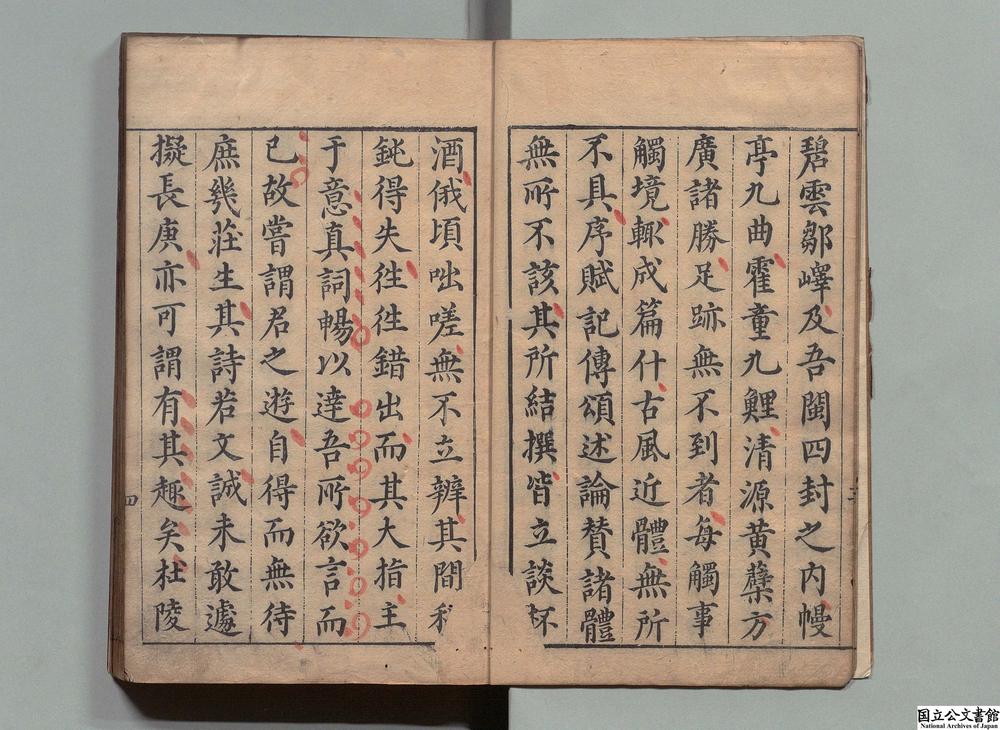 碧雲鄒嶧及吾閩四封之內幔
亭九曲霍童九鯉清源黃蘗方
廣諸勝足跡無不到者每觸事
觸境輙成篇什古風近體無所
不具序賦記傳頌述論贊諸體
無所不該其所結撰皆立談杯
酒俄頃咄嗟無不立辨其間利
鈍得失徃徃錯出而其大指主
于意真詞暢以達吾所欲言而
已故嘗謂君之遊自得而無待
庶幾莊生其詩若文誠未敢遽
擬長庚亦可謂有其趣矣杜陵
四
国立公文書館
National Archives of Japan